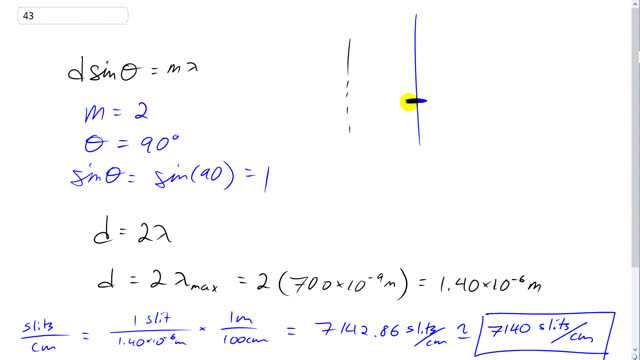 43
d sinθ = mλ
m = 2
θ = 90°
sinθ = sin(90) = 1
d = 2λ
d = 2 λmax = 2 (700×10⁻⁹ m) = 1.40×10⁻⁶ m
slits/cm = 1 slit/1.40×10⁻⁶m × 1m/100cm = 7142.86 slits/cm ≃ 7140 slits/cm